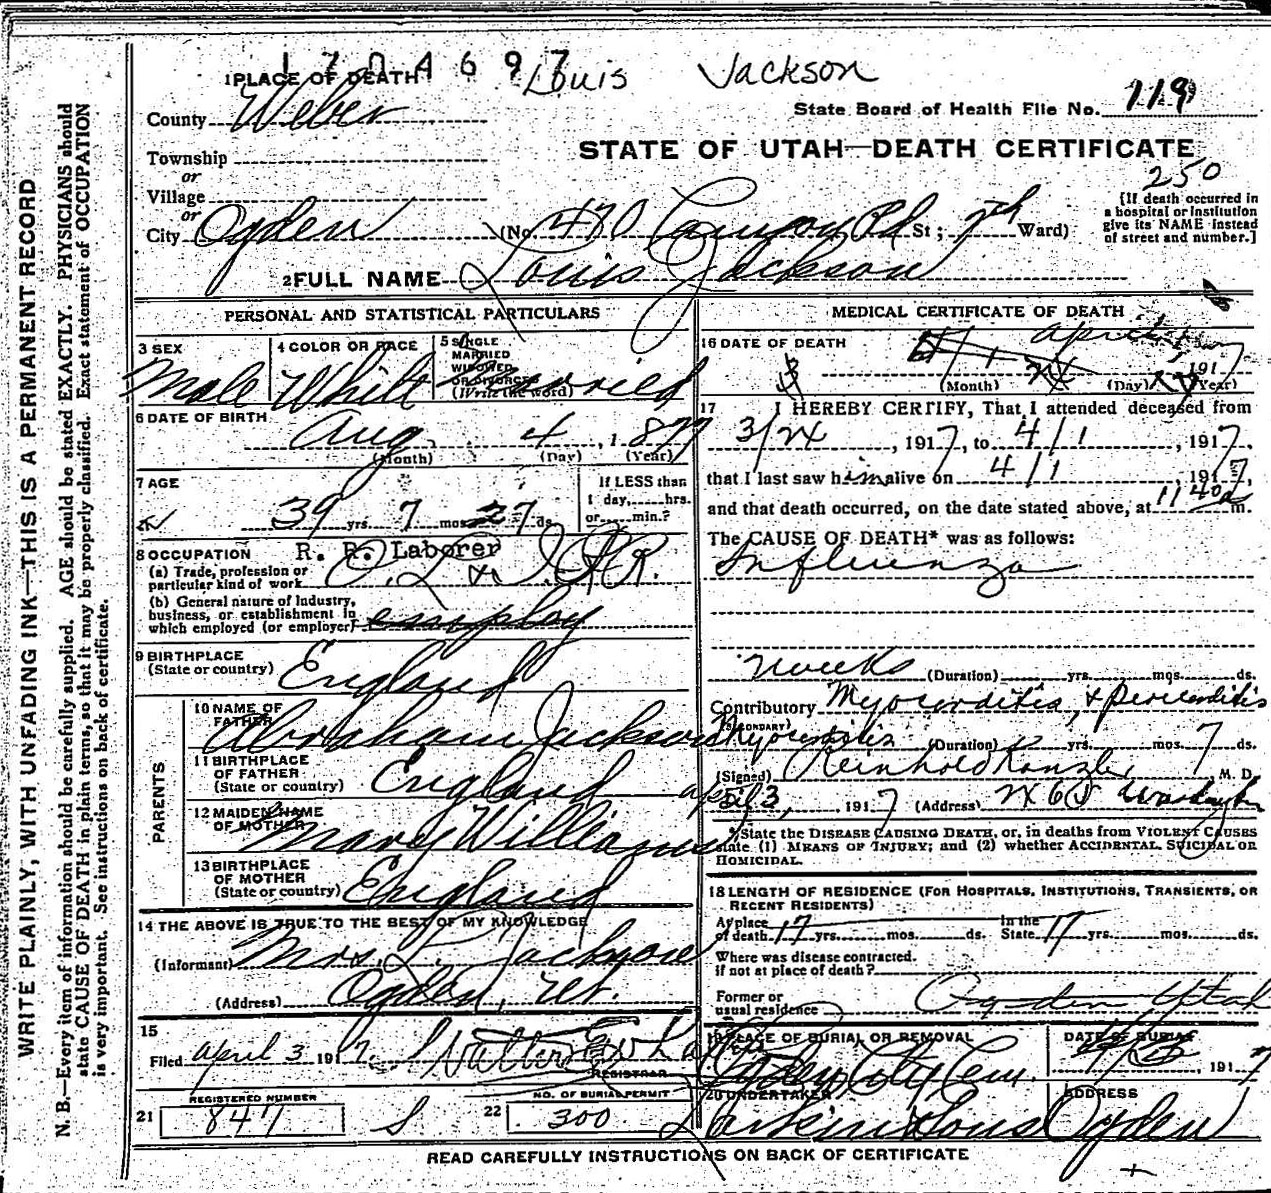 1704697
Louis Jackson
1 PLACE OF DEATH
State Board of Health File No. 119
County Weber
STATE OF UTAH—DEATH CERTIFICATE
Township
or
Village
or
City Ogden (No. 470 Canyon Rd St; 7th Ward)
250
[If death occurred in
a hospital or institution
give its NAME instead
of street and number.]
2 FULL NAME Louis Jackson
PERSONAL AND STATISTICAL PARTICULARS
3 SEX
Male
4 COLOR OR RACE
White
5 SINGLE
MARRIED
WIDOWED
OR DIVORCED
(Write the word)
Married
6 DATE OF BIRTH
Aug 4, 1877
(Month) (Day) (Year)
7 AGE
39 yrs. 7 mos. 27 ds.
If LESS than
1 day, hrs.
or min.?
8 OCCUPATION R. R. Laborer
(a) Trade, profession or
particular kind of work
(b) General nature of Industry,
business, or establishment in
which employed (or employer) employ
9 BIRTHPLACE
(State or country) England
PARENTS
10 NAME OF
FATHER Abraham Jackson
11 BIRTHPLACE
OF FATHER
(State or country) England
12 MAIDEN NAME
OF MOTHER Mary Williams
13 BIRTHPLACE
OF MOTHER
(State or country) England
14 THE ABOVE IS TRUE TO THE BEST OF MY KNOWLEDGE
(Informant) Mrs. L. Jackson
(Address) Ogden, Ut.
15
Filed April 3, 1917
REGISTRAR
21 REGISTERED NUMBER
847
S
22 NO. OF BURIAL PERMIT
300
MEDICAL CERTIFICATE OF DEATH
16 DATE OF DEATH
April 1, 1917
(Month) (Day) (Year)
17 I HEREBY CERTIFY, That I attended deceased from
3/24, 1917, to 4/1, 1917,
that I last saw him alive on 4/1, 1917,
and that death occurred, on the date stated above, at 1140 a m.
The CAUSE OF DEATH* was as follows:
Influenza
weeks (Duration) yrs. mos. ds.
Contributory Myocarditis, & pericarditis
(SECONDARY)
Myocarditis (Duration) yrs. mos. 7 ds.
(Signed) Reinhold Kanzler, M. D.
3, 1917 (Address) Washington
*State the DISEASE CAUSING DEATH, or, in deaths from VIOLENT CAUSES
state (1) MEANS OF INJURY; and (2) whether ACCIDENTAL, SUICIDAL OR
HOMICIDAL.
18 LENGTH OF RESIDENCE (FOR HOSPITALS, INSTITUTIONS, TRANSIENTS, OR
RECENT RESIDENTS)
At place
of death 17 yrs. mos. ds.
In the
State 17 yrs. mos. ds.
Where was disease contracted.
if not at place of death?
Former or
usual residence Ogden Utah
19 PLACE OF BURIAL OR REMOVAL
Ogden City Cem.
DATE OF BURIAL
1917
20 UNDERTAKER
Larkin & Sons
ADDRESS
Ogden
READ CAREFULLY INSTRUCTIONS ON BACK OF CERTIFICATE
WRITE PLAINLY, WITH UNFADING INK—THIS IS A PERMANENT RECORD
N. B.—Every item of information should be carefully supplied. AGE should be stated EXACTLY. PHYSICIANS should
state CAUSE OF DEATH in plain terms, so that it may be properly classified. Exact statement of OCCUPATION
is very important. See instructions on back of certificate.